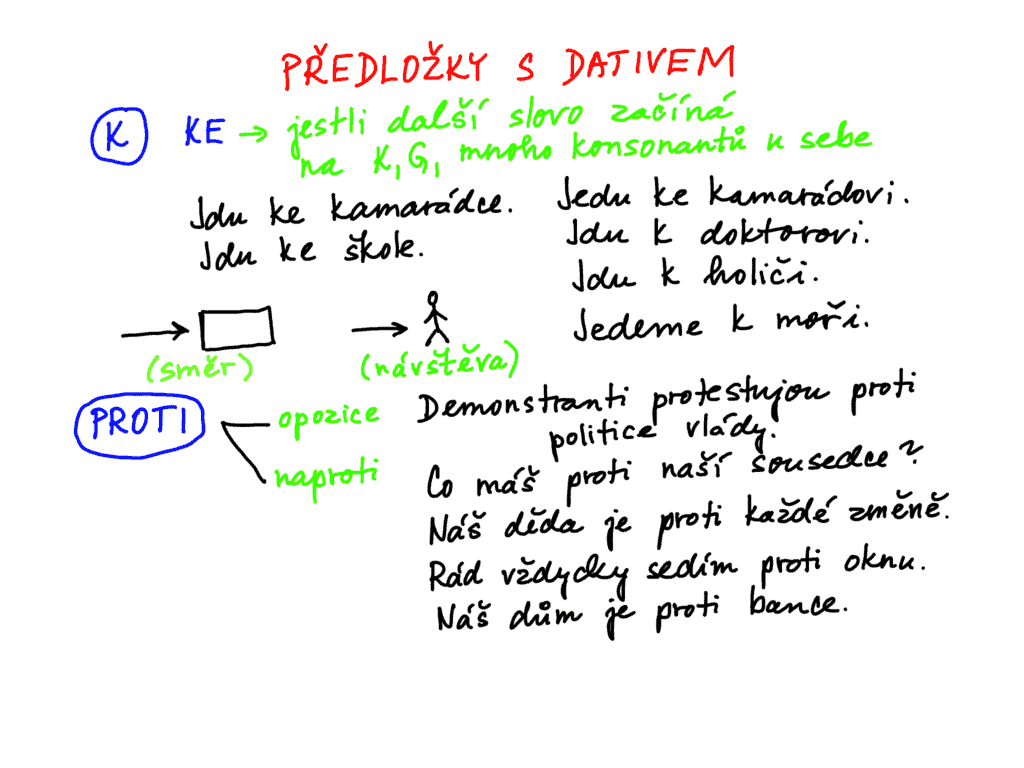 PŘEDLOŽKY S DATIVEM
K KE → jestli další slovo začíná
na K, G, mnoho konsonantů u sebe
Jdu ke kamarádce.
Jdu ke škole.
Jedu ke kamarádovi.
Jdu k doktorovi.
Jdu k holiči.
Jedeme k moři.
(směr) (návštěva)
PROTI
opozice
naproti
Demonstranti protestujou proti
politice vlády.
Co máš proti naší sousedce?
Náš děda je proti každé změně.
Rád vždycky sedím proti oknu.
Náš dům je proti bance.